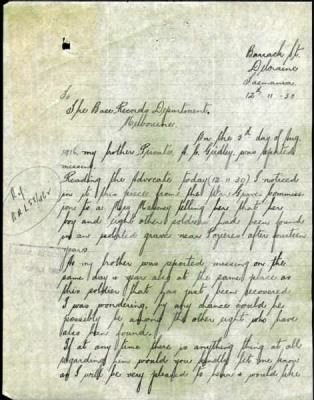 Barrack St.
Deloraine
Tasmania
12th 11 - 30
To
The Base Records Department.
Melbourne.
On the 3rd day of Aug
1916, my brother Private A. G. was reported
missing.
Reading the Advocate today (12.11.30) I noticed
in it this piece from the War Graves Commiss
ione to a Mrs telling her that her
boy and eight other soldiers had been found
in an grave near Pozieres after fourteen
years
As my brother was reported missing on the
same day & year also at the same place as
this soldier that has just been recovered
I was wondering, by any chance could he
possibly be among the other eight who have
also been found.
If at any time there is anything thing at all
regarding him would you kindly let me know
as I will be very pleased to hear & would like